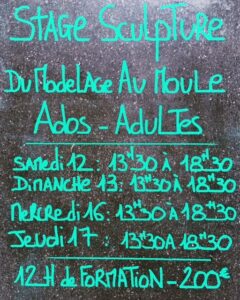 STAGE SCULPTURE
DU MODELAGE AU MOULE
ADOS - ADULTES
SAMEDI 12 : 13H30 À 18H30
DIMANCHE 13 : 13H30 À 18H30
MERCREDI 16 : 13H30 À 18H30
JEUDI 17 : 13H30 A 18H30
12 H DE FORMATION - 200€